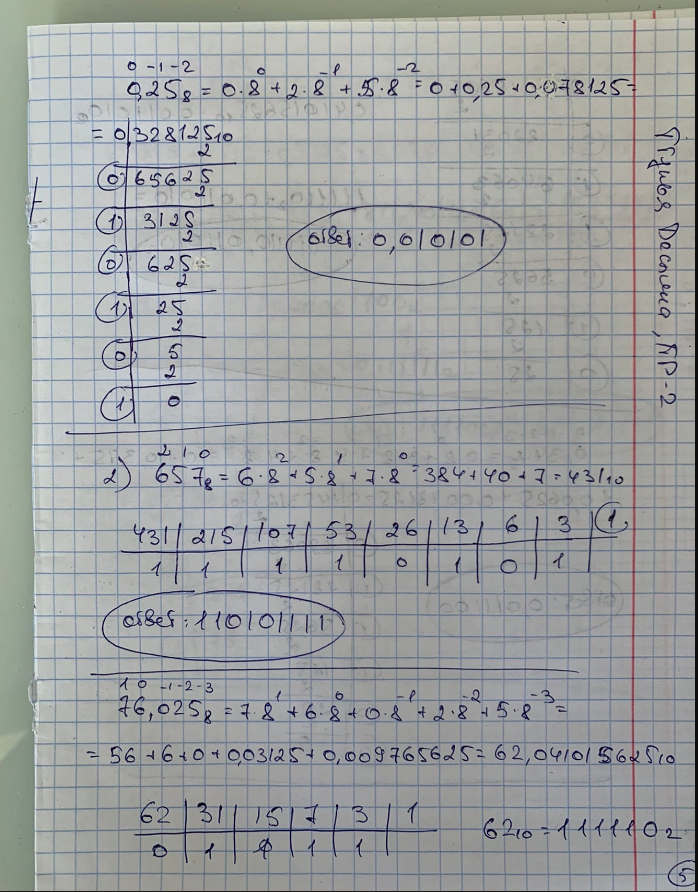 0 -1 -2
0,25₈ = 0·8⁰ + 2·8⁻¹ + 5·8⁻² = 0+0,25+0,078125=
= 0,328125₁₀
2
0 65625
2
1 3125
2
0 625
2
1 25
2
0 5
2
1 0
ответ: 0,010101
ПР-2
2 1 0
2) 657₈ = 6·8² + 5·8¹ + 7·8⁰ = 384+40+7=431₁₀
431 | 215 | 107 | 53 | 26 | 13 | 6 | 3 | 1
1 | 1 | 1 | 1 | 0 | 1 | 0 | 1
ответ: 110101111
1 0 -1 -2 -3
76,025₈ = 7·8¹ + 6·8⁰ + 0·8⁻¹ + 2·8⁻² + 5·8⁻³ =
= 56 + 6 + 0 + 0,03125 + 0,009765625 = 62,041015625₁₀
62 | 31 | 15 | 7 | 3 | 1
0 | 1 | 1 | 1 | 1
62₁₀ = 111110₂
5